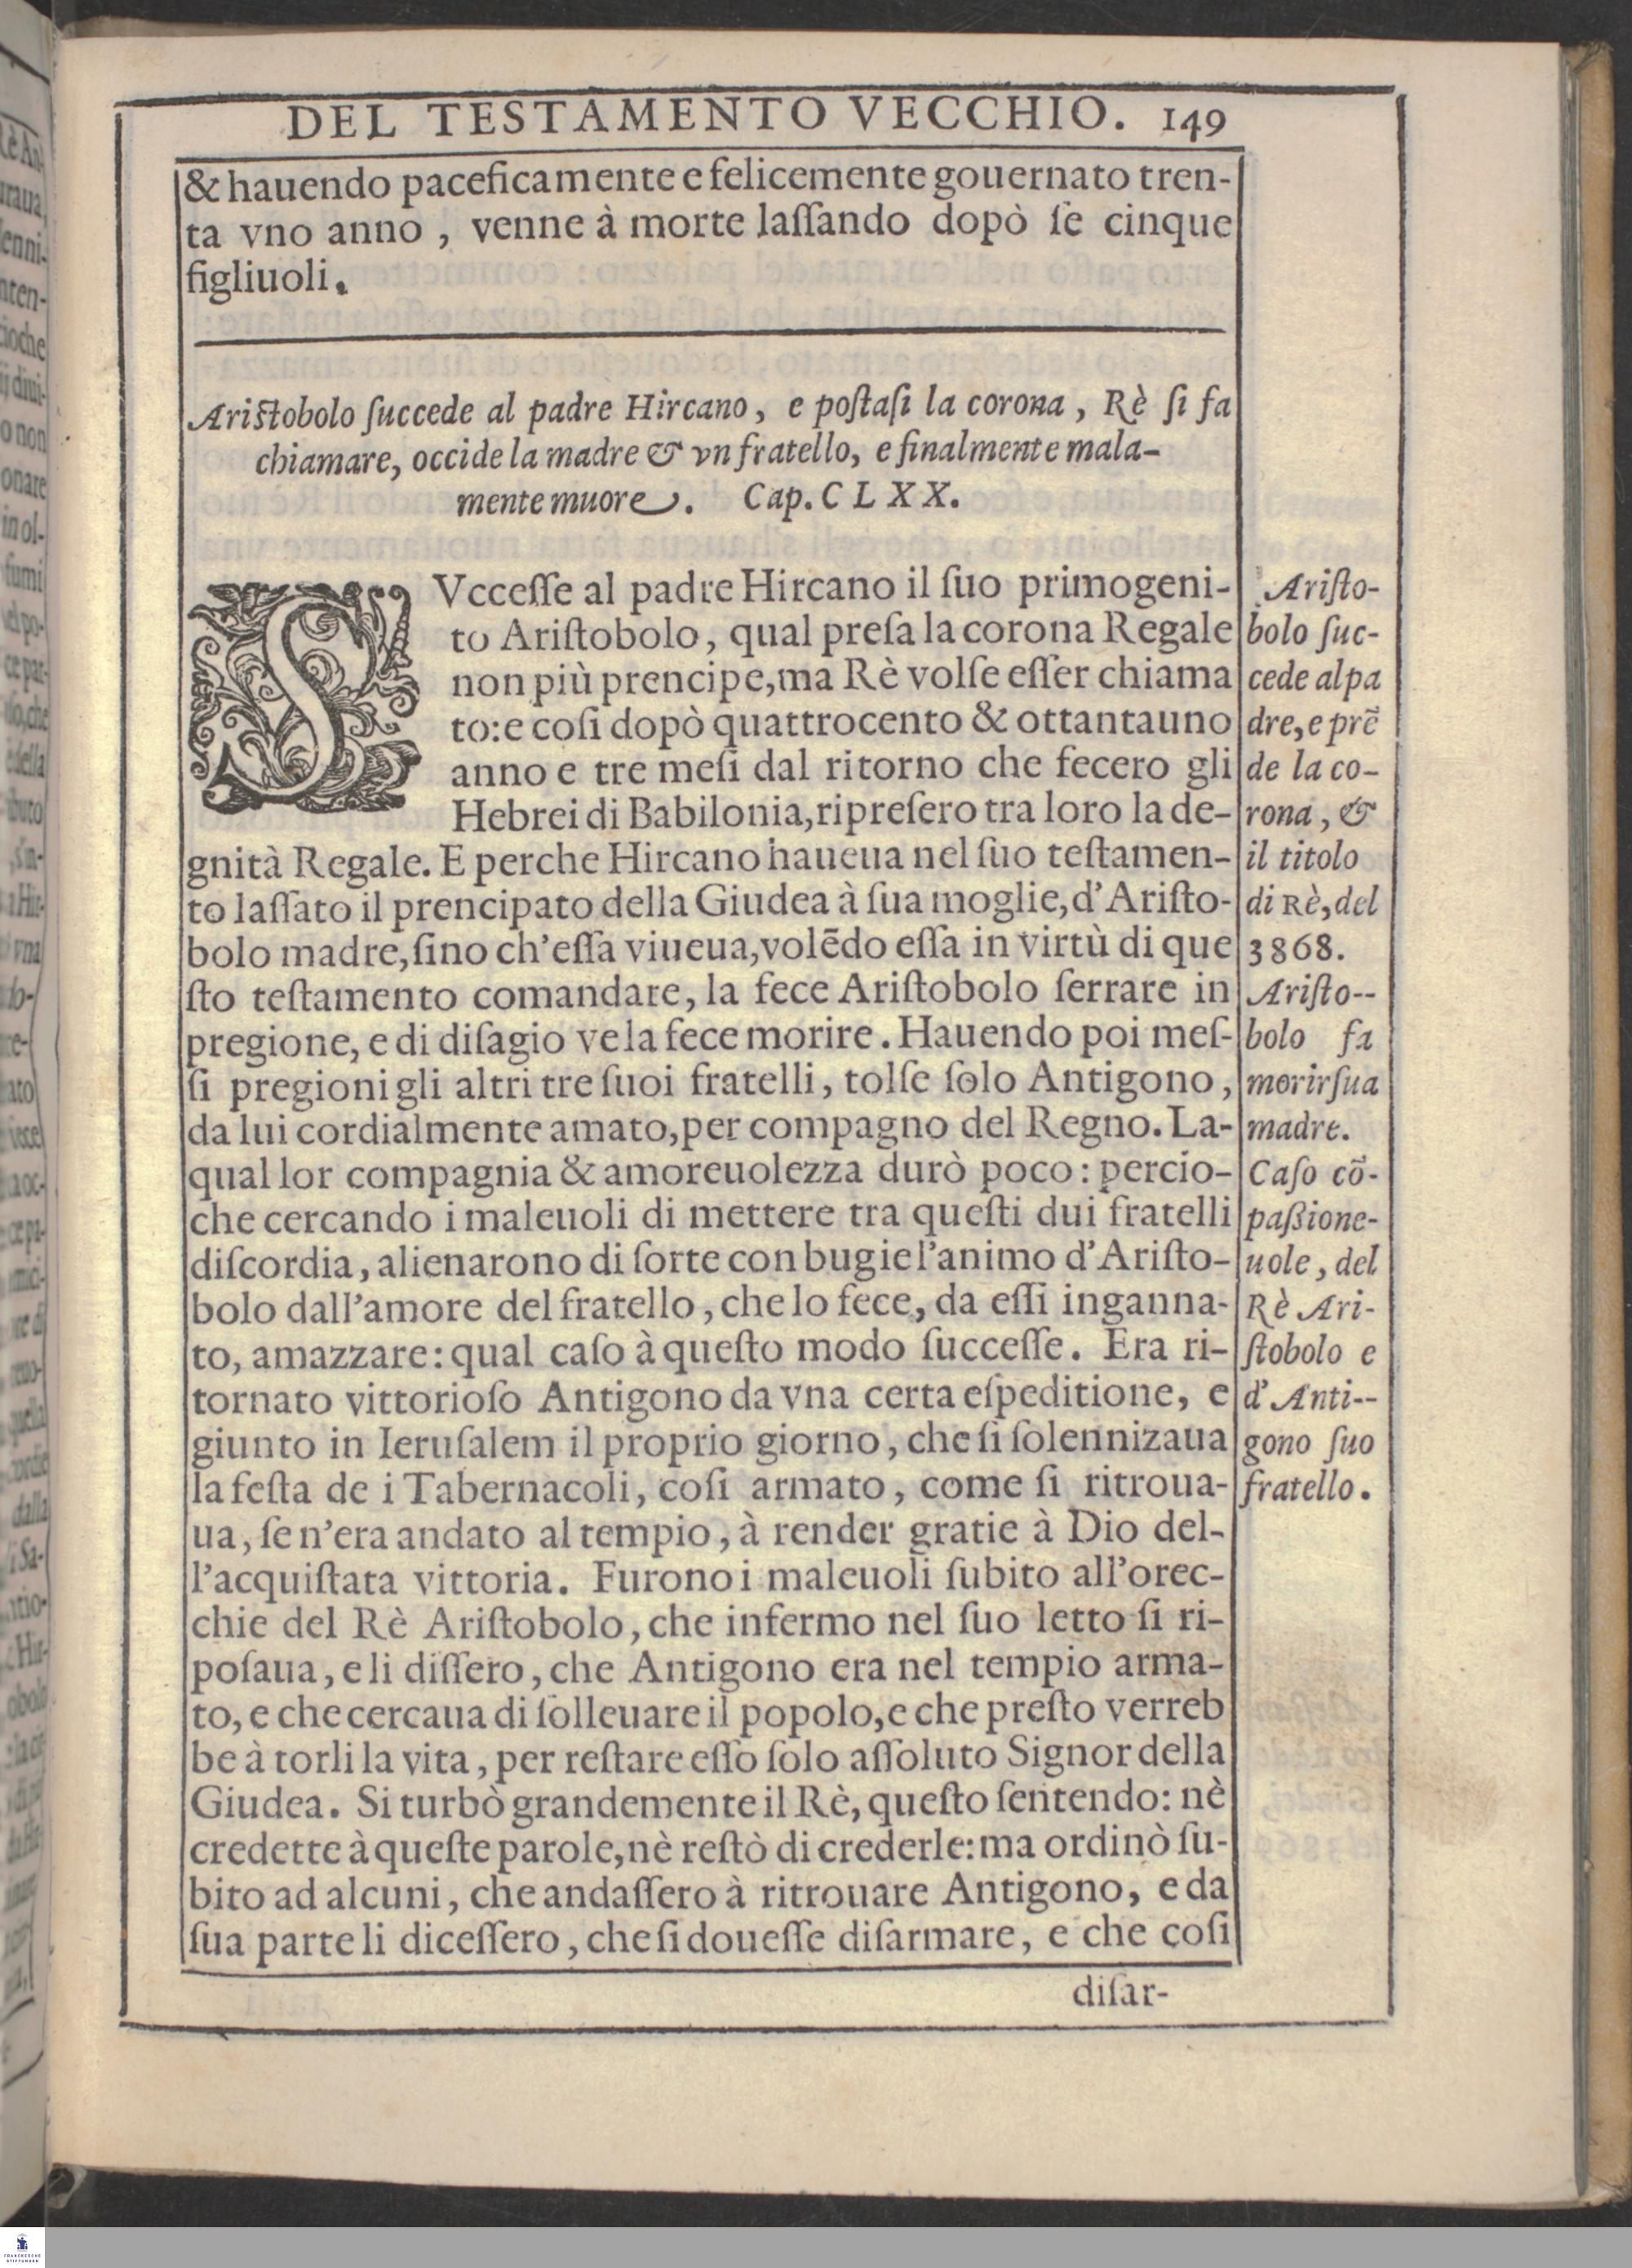 DEL TESTAMENTO VECCHIO. 149
& hauendo paceficamente e felicemente gouernato tren-
ta vno anno , venne à morte laſſando dopò ſe cinque
figliuoli.
Ariſtobolo ſuccede al padre Hircano, e poſtaſi la corona, Rè ſi fa
chiamare, occide la madre & vn fratello, e finalmente mala-
mente muore. Cap. C L X X.
SVcceſſe al padre Hircano il ſuo primogeni-
to Ariſtobolo, qual preſa la corona Regale
non più prencipe, ma Rè volſe eſſer chiama
to: e coſi dopò quattrocento & ottantauno
anno e tre meſi dal ritorno che fecero gli
Hebrei di Babilonia, ripreſero tra loro la de-
gnità Regale. E perche Hircano haueua nel ſuo teſtamen-
to laſſato il prencipato della Giudea à ſua moglie, d'Ariſto-
bolo madre, ſino ch'eſſa viueua, volēdo eſſa in virtù di que
ſto teſtamento comandare, la fece Ariſtobolo ſerrare in
pregione, e di diſagio ve la fece morire. Hauendo poi meſ-
ſi pregioni gli altri tre ſuoi fratelli, tolſe ſolo Antigono,
da lui cordialmente amato, per compagno del Regno. La-
qual lor compagnia & amoreuolezza durò poco: percio-
che cercando i maleuoli di mettere tra queſti dui fratelli
diſcordia, alienarono di ſorte con bugie l'animo d'Ariſto-
bolo dall'amore del fratello, che lo fece, da eſſi inganna-
to, amazzare: qual caſo à queſto modo ſucceſſe. Era ri-
tornato vittorioſo Antigono da vna certa eſpeditione, e
giunto in Ieruſalem il proprio giorno, che ſi ſolennizaua
la feſta de i Tabernacoli, coſi armato, come ſi ritroua-
ua, ſe n'era andato al tempio, à render gratie à Dio del-
l'acquiſtata vittoria. Furono i maleuoli ſubito all'orec-
chie del Rè Ariſtobolo, che infermo nel ſuo letto ſi ri-
poſaua, e li diſſero, che Antigono era nel tempio arma-
to, e che cercaua di ſolleuare il popolo, e che preſto verreb
be à torli la vita, per reſtare eſſo ſolo aſſoluto Signor della
Giudea. Si turbò grandemente il Rè, queſto ſentendo: nè
credette à queſte parole, nè reſtò di crederle: ma ordinò ſu-
bito ad alcuni, che andaſſero à ritrouare Antigono, e da
ſua parte li diceſſero, che ſi doueſſe diſarmare, e che coſi
diſar-
Ariſto-
bolo ſuc-
cede al pa
dre, e prē
de la co-
rona, &
il titolo
di Rè, del
3868.
Ariſto--
bolo fa
morir ſua
madre.
Caſo cō-
paßione-
uole, del
Rè Ari-
ſtobolo e
d'Anti--
gono ſuo
fratello.
FRANCKESCHE
STIFTUNGEN